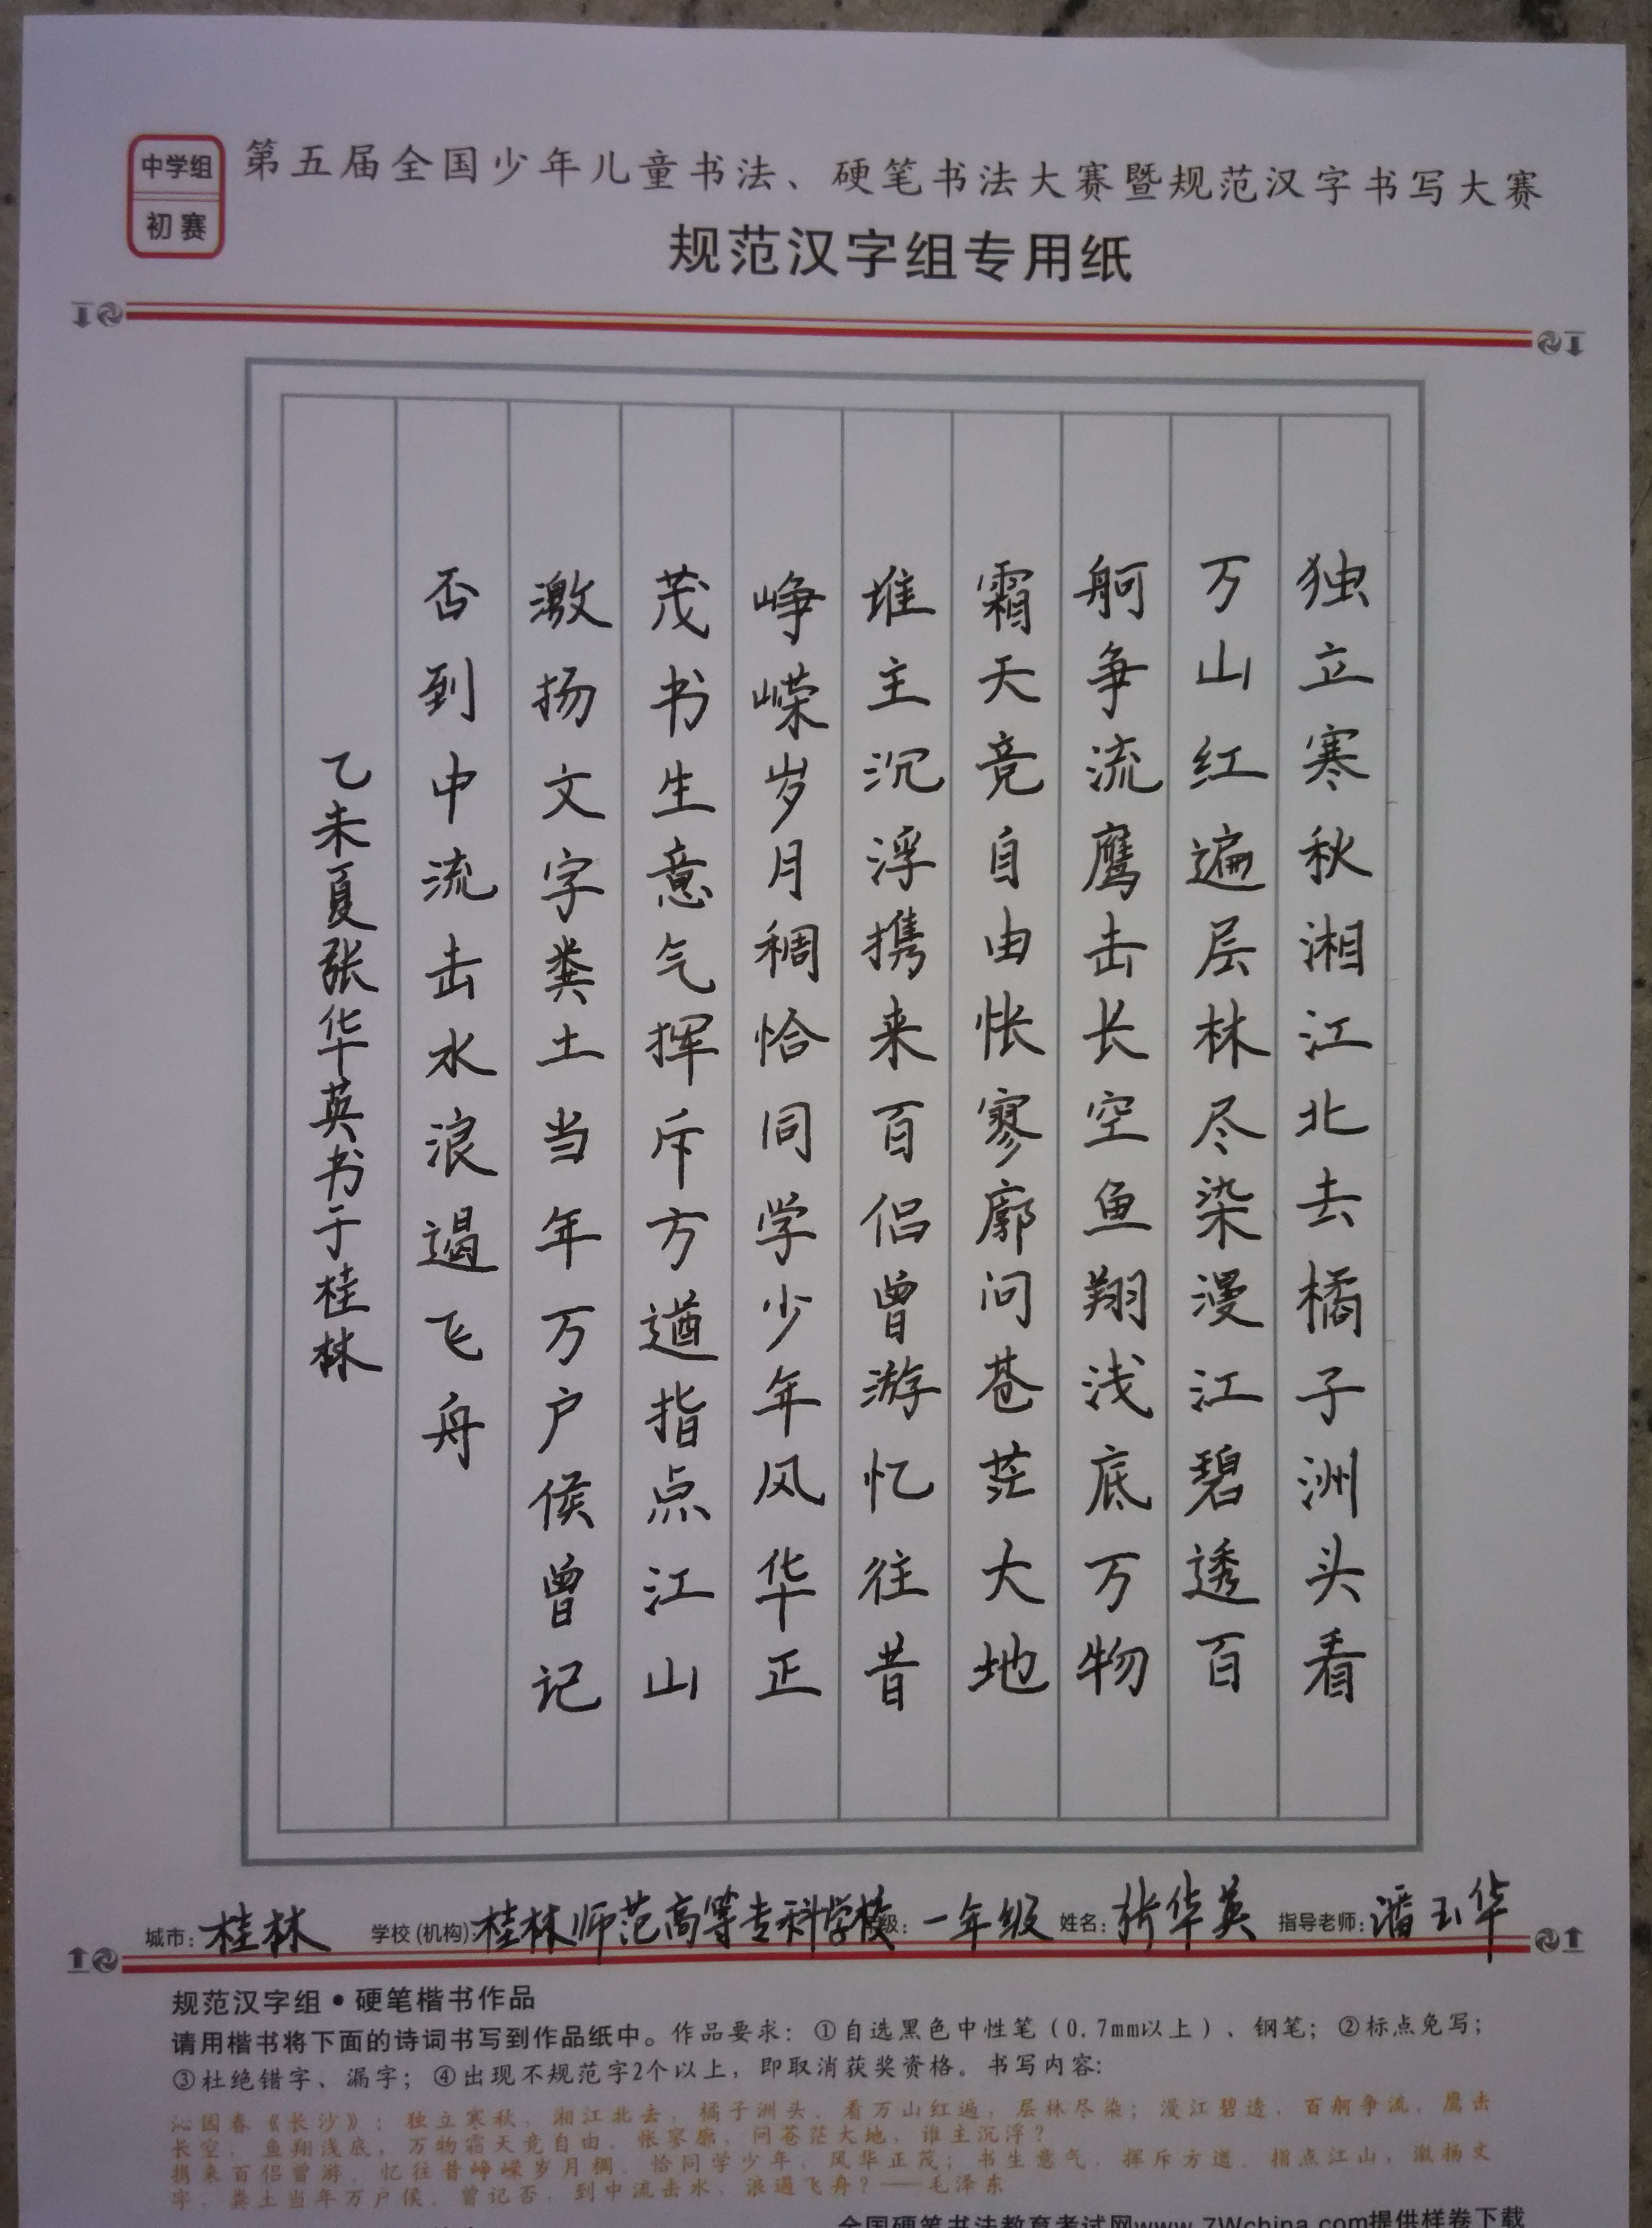 中学组
初赛
第五届全国少年儿童书法、硬笔书法大赛暨规范汉字书写大赛
规范汉字组专用纸
独立寒秋湘江北去橘子洲头看
万山红遍层林尽染漫江碧透百
舸争流鹰击长空鱼翔浅底万物
霜天竞自由怅寥廓问苍茫大地
谁主沉浮携来百侣曾游忆往昔
峥嵘岁月稠恰同学少年风华正
茂书生意气挥斥方遒指点江山
激扬文字粪土当年万户侯曾记
否到中流击水浪遏飞舟
乙未夏张华英书于桂林
城市:桂林 学校(机构):桂林师范高等专科学校 级:一年级 姓名:张华英 指导老师:潘玉华
规范汉字组•硬笔楷书作品
请用楷书将下面的诗词书写到作品纸中。作品要求:①自选黑色中性笔(0.7mm以上)、钢笔;②标点免写;
③杜绝错字、漏字;④出现不规范字2个以上,即取消获奖资格。书写内容:
沁园春《长沙》:独立寒秋,湘江北去,橘子洲头。看万山红遍,层林尽染;漫江碧透,百舸争流。鹰击
长空,鱼翔浅底,万物霜天竞自由。怅寥廓,问苍茫大地,谁主沉浮?
携来百侣曾游,忆往昔峥嵘岁月稠。恰同学少年,风华正茂;书生意气,挥斥方遒。指点江山,激扬文
字,粪土当年万户侯。曾记否,到中流击水,浪遏飞舟?——毛泽东
全国硬笔书法教育考试网www.7Wchina.com提供样卷下载